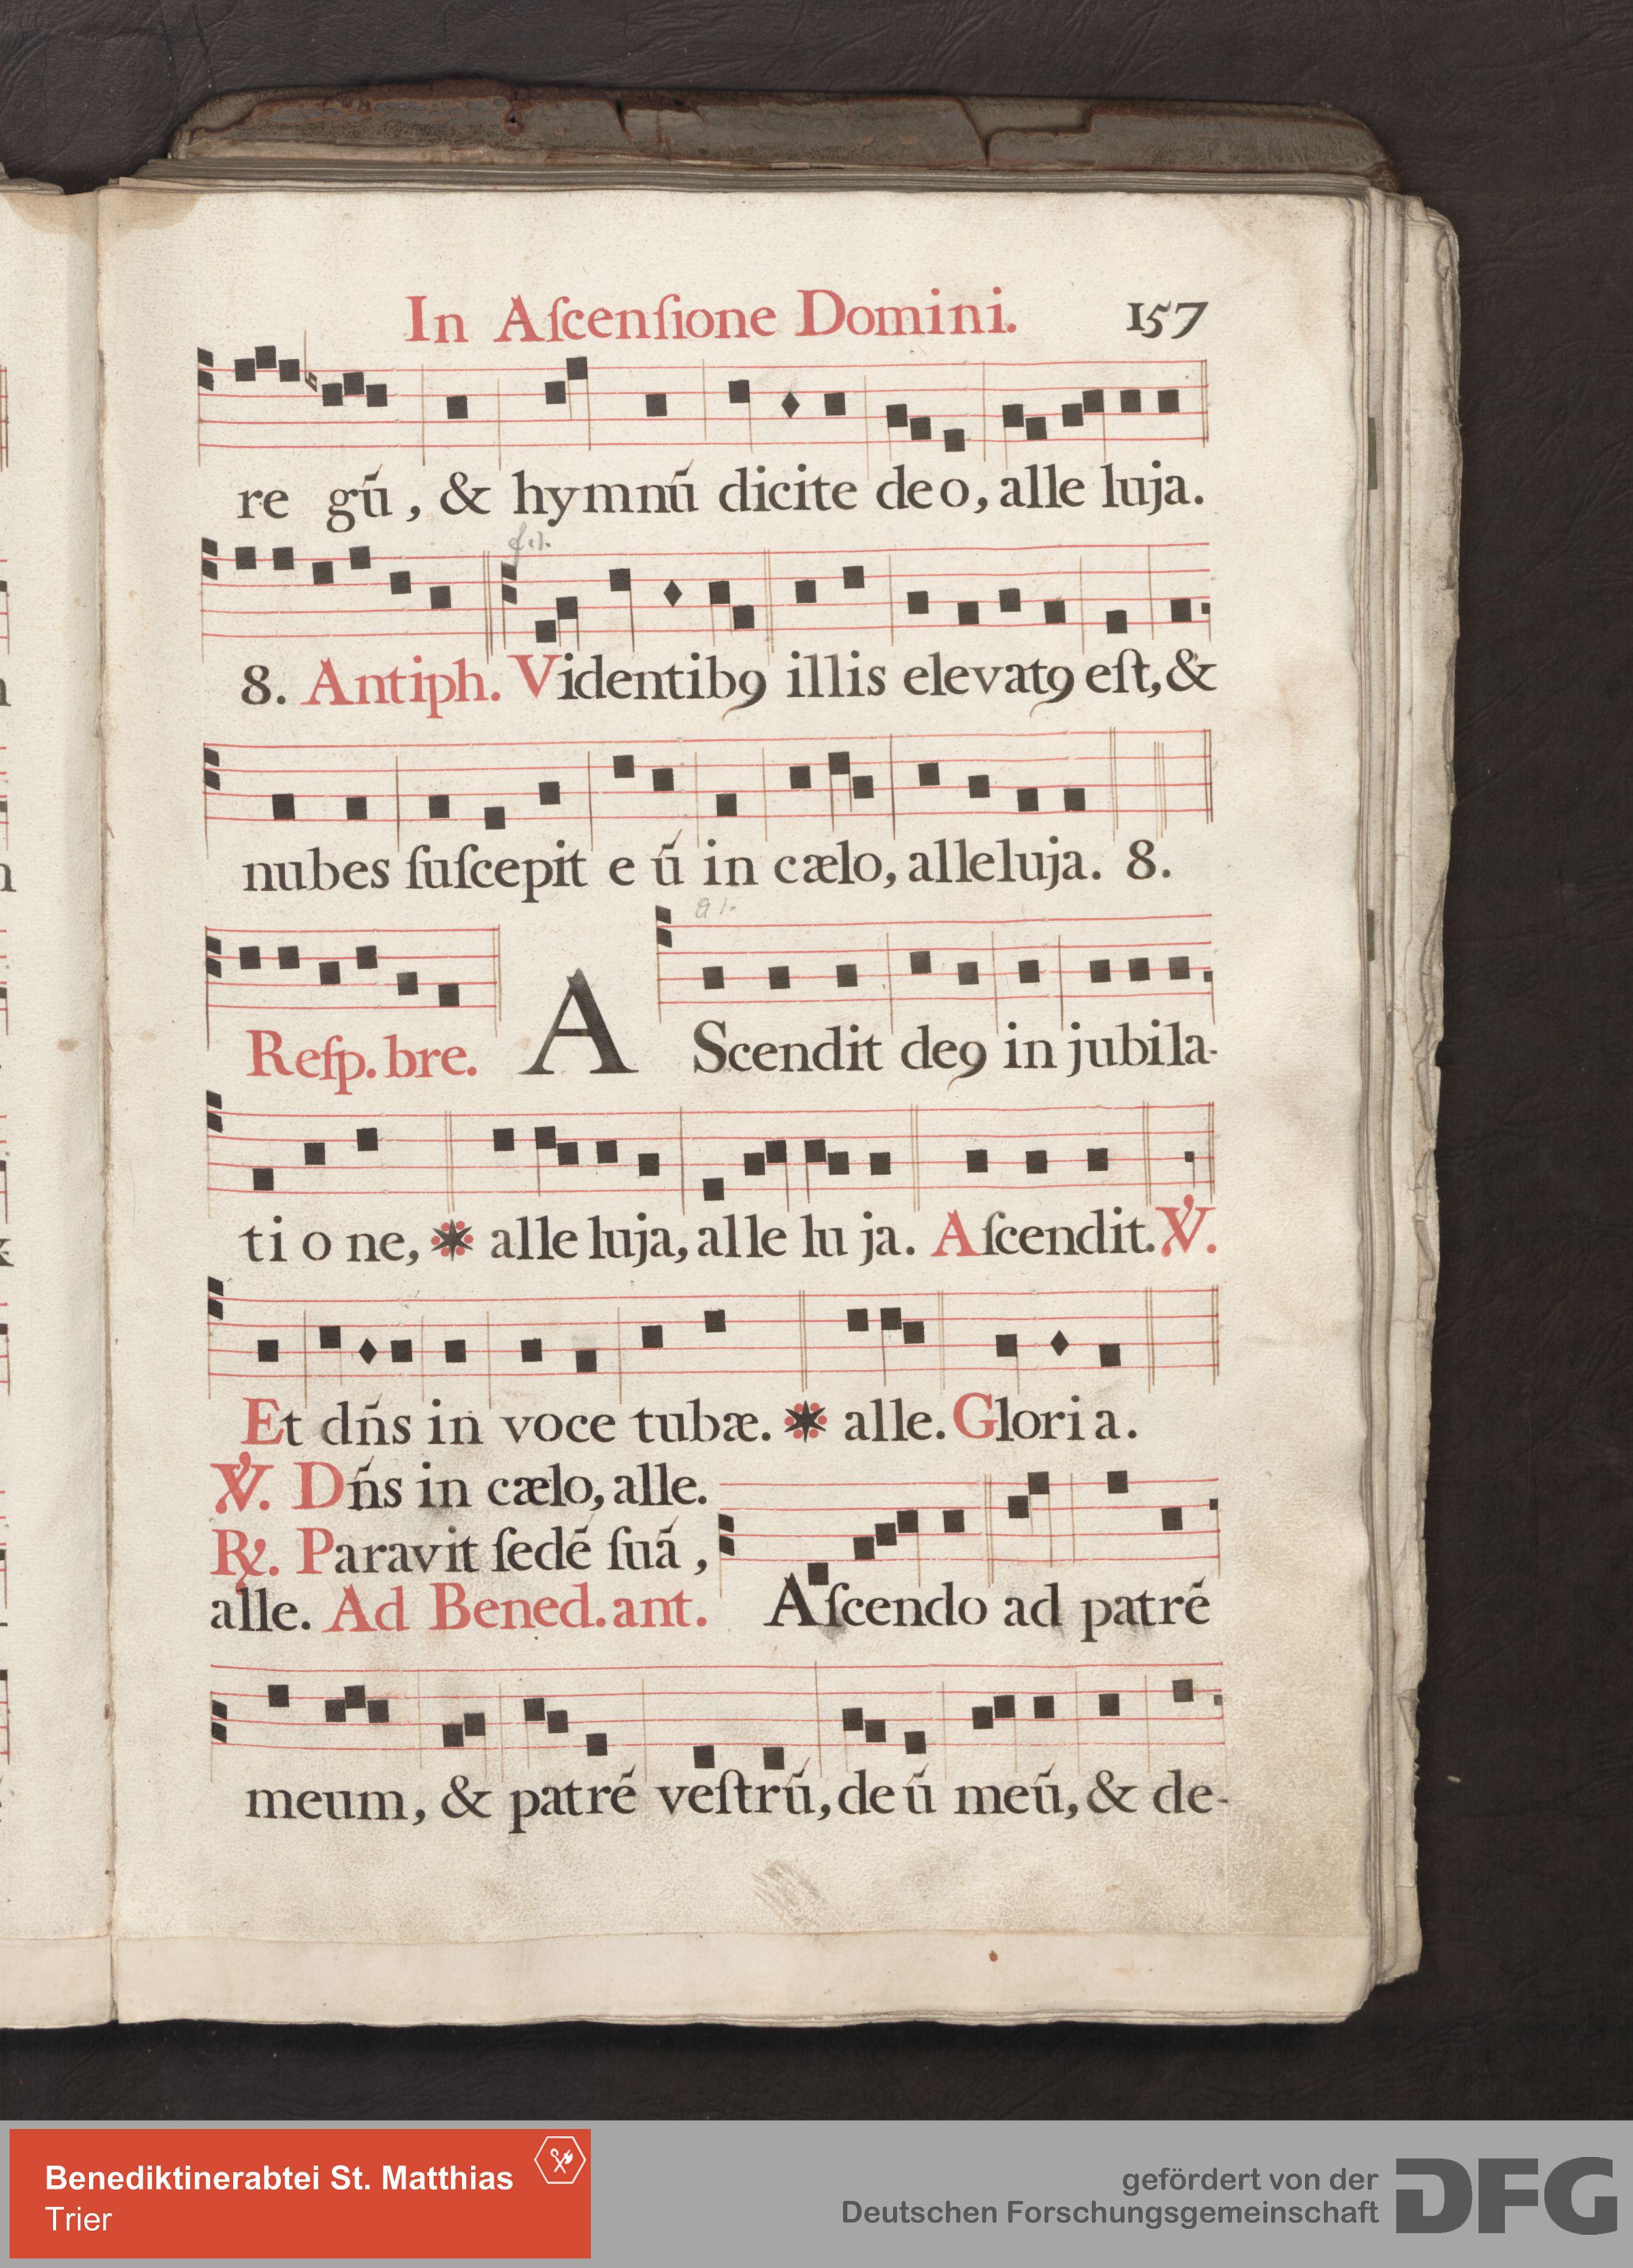 In Aſcenſione Domini. 157
re gū, & hymnū dicite deo, alle luja.
8. Antiph. Videntibꝯ illis elevatꝯ eſt, &
nubes ſuſcepit e ū in cælo, alleluja. 8.
Reſp. bre. A Scendit deꝯ in jubila-
ti o ne, * alle luja, alle lu ja. Aſcendit. ℣.
Et dn̄s in voce tubæ. * alle. Gloria.
℣. Dn̄s in cælo, alle.
℟. Paravit ſedē ſuā,
alle. Ad Bened. ant. Aſcendo ad patrē
meum, & patrē veſtrū, de ū meū, & de-
Benediktinerabtei St. Matthias
Trier
gefördert von der
Deutschen Forschungsgemeinschaft
DFG